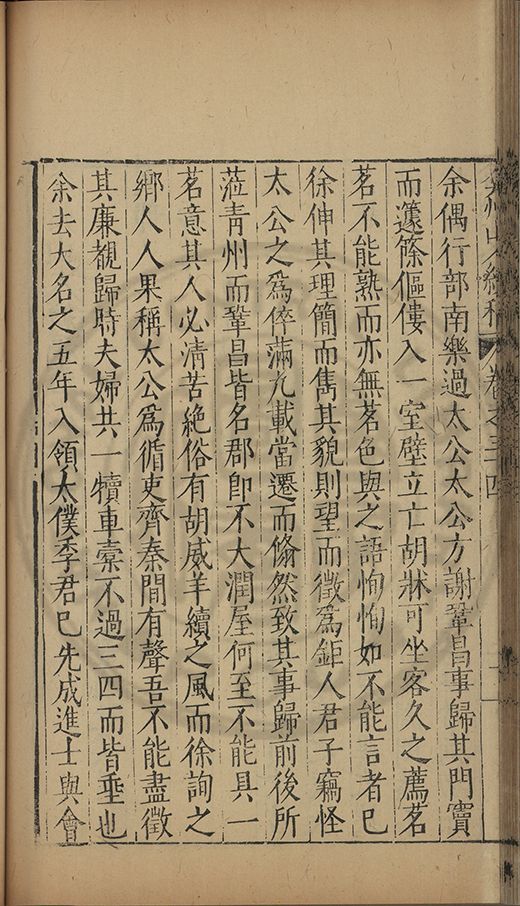 弇州山人續稿 卷之三四
余偶行部南樂過太公太公方謝鞏昌事歸其門竇
而籧篨傴僂入一室壁立亡胡牀可坐客久之薦茗
茗不能熟而亦無茗色與之語恂恂如不能言者已
徐伸其理簡而雋其貌則望而徵為鉅人君子竊怪
太公之為倅滿九載當遷而翛然致其事歸前後所
蒞青州而鞏昌皆名郡卽不大潤屋何至不能具一
茗意其人必清苦絶俗有胡威羊續之風而徐詢之
鄉人人果稱太公為循吏齊秦間有聲吾不能盡徵
其廉覩歸時夫婦共一犢車橐不過三四而皆垂也
余去大名之五年入領太僕季君已先成進士與會